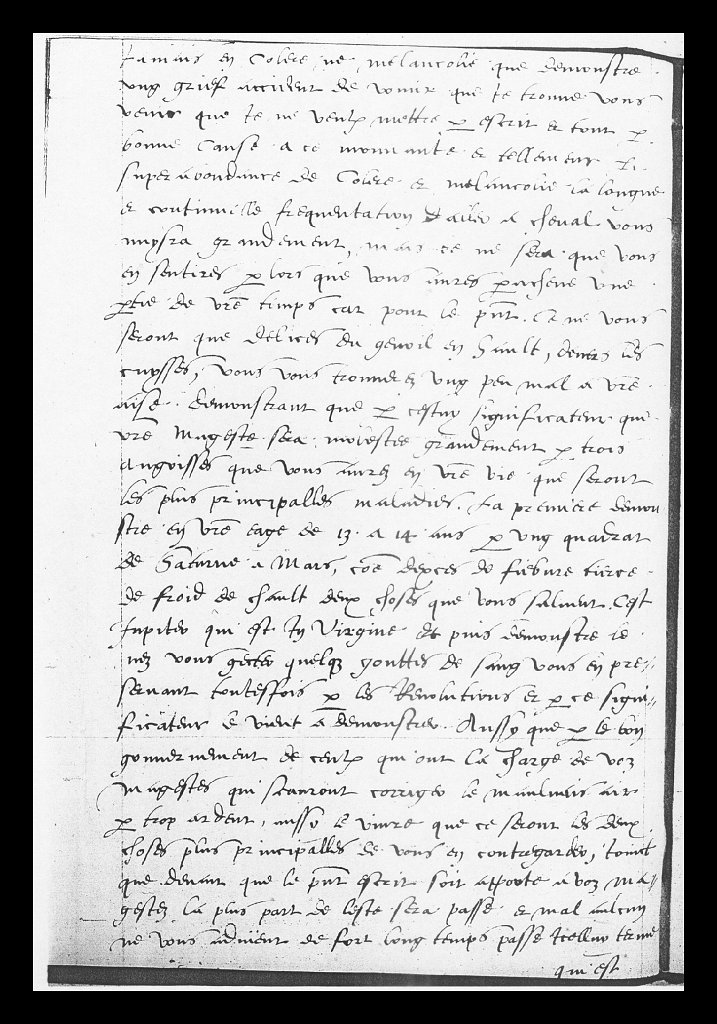 Jamais en Colere, ne melancolie que demonstre
ung grief accident de vomir que te trouve vous
venir que te ne veulx mettre p escrit et tout p
bonne Cause a ce mouvante et tellement
superabondance de Colere et melancolie la longue
et continuelle frequentation d'aller a cheval vous
nuysra grandement, mais ce ne sera que vous
en sentires p lors que vous aures pacheve une
ptie de vre temps car pour le pnt. Ce ne vous
seront que delices du genoil en hault, devers les
cuysses, vous vous trouverez ung peu mal a vre
aise. demonstrant que p cestuy significateur que
vre Mageste sera molestee grandement p trois
Angoisses que vous aurez en vre vie que seront
les plus principalles maladies. La premiere demon
stre en vre eage de 13 a 14 ans p ung quadrat
de Saturne a Mars, coe dexces de fiebure tierce
de froid de chault deux choses que vous saluent. C'est
Jupiter qui est In Virgine et puis demonstre le
nez vous gecter quelq gouttes de sang vous en pre=
servant toutesfois p les Revolutions et p ce signi=
ficateur le vient a demonstrer. Aussy que p le bon
gouvernement de ceulx qui ont la charge de voz
Magestes qui scauront corriger le maulvais air
p trop ardent, aussy le vivre que ce seront les deux
choses plus principalles de vous en contregarder, toinct
que devant que le pnt escrit soit apporte a voz Ma=
gestez la plus part de leste sera passe et mal aulcun
ne vous advient de fort long temps passe Icelluy terme
qui est